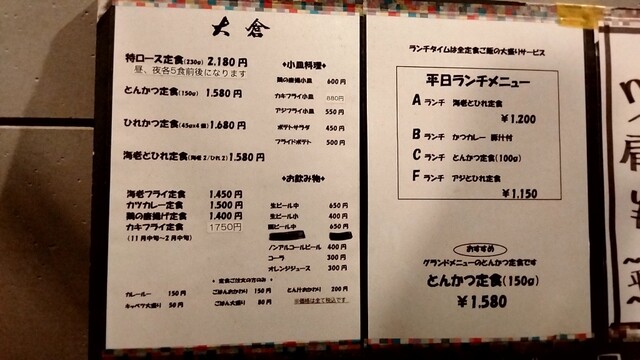 大倉
特ロース定食(230g) 2.180円
昼、夜各5食前後になります
とんかつ定食(150g) 1.580円
ひれかつ定食(45gx4個) 1.680円
海老とひれ定食(海老2/ひれ2) 1.580円
海老フライ定食 1.450円
カツカレー定食 1.500円
鶏の唐揚げ定食 1.400円
カキフライ定食 1750円
(11月中旬〜2月中旬)
◆小皿料理◆
鶏の唐揚小皿 600円
カキフライ小皿 880円
アジフライ小皿 550円
ポテトサラダ 450円
フライドポテト 500円
◆お飲み物◆
生ビール中 650円
生ビール小 400円
瓶ビール中 650円
ノンアルコールビール 400円
コーラ 300円
オレンジジュース 300円
◆ 定食ご注文の方のみ ◆
カレールー 150円 ごはんおかわり 150円 とん汁おかわり 200円
キャベツ大盛り 50円 ごはん大盛り 80円 ※価格は全て税込です
ランチタイムは全定食ご飯の大盛りサービス
平日ランチメニュー
Aランチ 海老とひれ定食
¥1.200
Bランチ かつカレー 豚汁付
Cランチ とんかつ定食(100g)
Fランチ アジとひれ定食
¥1.150
おすすめ
グランドメニューのとんかつ定食です
とんかつ定食(150g)
¥1.580